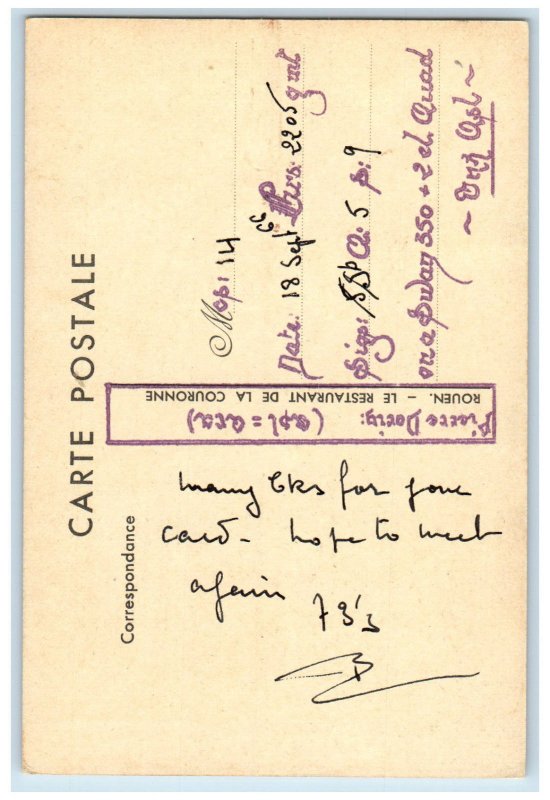 CARTE POSTALE
Correspondance
many tks for your
card - hope to meet
again
73's
Pierre Dorig:
(qsl = qra)
ROUEN. – LE RESTAURANT DE LA COURONNE
M op: 14
Date: 18 Sept 66 Hrs: 2205 gmt
Sigs: SSB Q: 5 S: 9
on a Sway 350 + 2 el. Quad
~ qsl ~